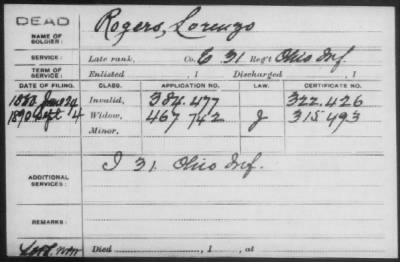 DEAD
NAME OF SOLDIER: Rogers, Lorenzo
SERVICE: Late rank, Co. E 31 Reg't Ohio Inf.
TERM OF SERVICE: Enlisted , 1 Discharged , 1
DATE OF FILING. CLASS. APPLICATION NO. LAW. CERTIFICATE NO.
1880 June 24 Invalid, 384.477 322.426
1890 Sept 4 Widow, 467 742 J 315493
Minor,
ADDITIONAL SERVICES: I 31 Ohio Inf.
REMARKS:
Died , 1 , at